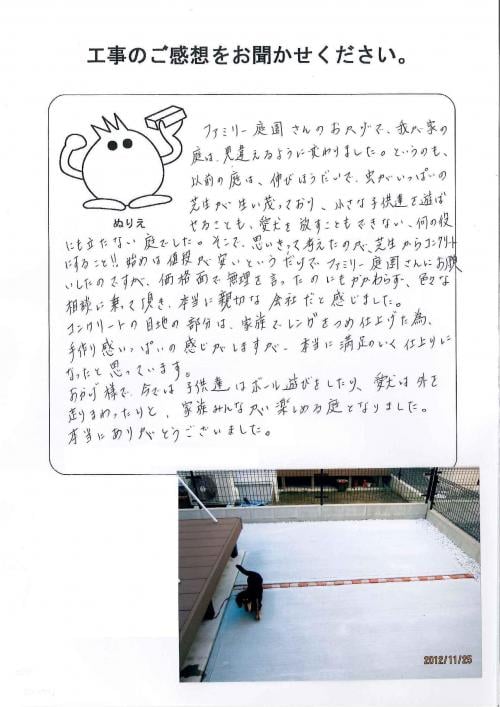 工事のご感想をお聞かせください。
ファミリー庭園さんのおかげで、我が家の
庭は、見違えるように変わりました。というのも、
以前の庭は、伸びほうだいで、虫がいっぱいの
芝生が生い茂っており、小さな子供達を遊ば
せることも、愛犬を放すこともできない、何の役
ぬりえ
にも立たない庭でした。そこで、思いきって考えたのが、芝生からコンクリート
にすること!!始めは値段が安いというだけで、ファミリー庭園さんにお願
いしたのですが、価格面で無理を言ったのにもかかわらず、色々な
相談に乗って頂き、本当に親切な会社だと感じました。
コンクリートの目地の部分は、家族でレンガをつめ仕上げた為、
手作り感いっぱいの感じがしますが、本当に満足のいく仕上りに
なったと思っています。
おかげ様で、今では子供達はボール遊びをしたり、愛犬は外を
走りまわったりと、家族みんなが楽しめる庭となりました。
本当にありがとうございました。
2012/11/25